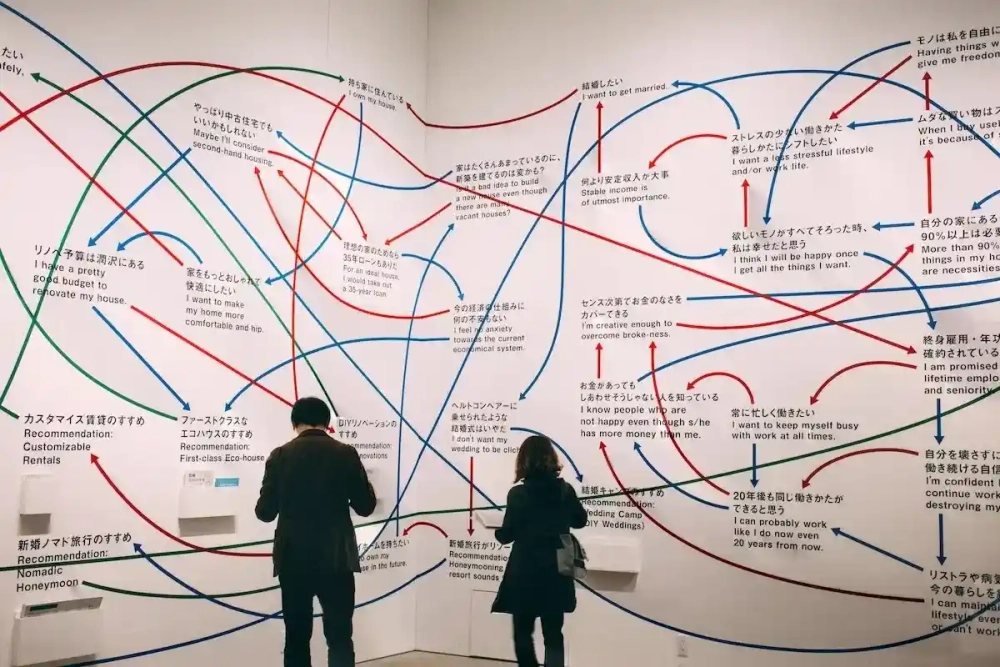 たい
afely,
持ち家に住んでいる
I own my house.
やっぱり中古住宅でも
いいかもしれない
Maybe I'll consider
second-hand housing.
家はたくさんあまっているのに、
新築を建てるのは変かも?
Is it a bad idea to build
a new house even though
there are many
vacant houses?
リノベ予算は潤沢にある
I have a pretty
good budget to
renovate my house.
家をもっとおしゃれで
快適にしたい
I want to make
my home more
comfortable and hip.
理想の家のためなら
35年ローンもありだ
For an ideal house,
I would take out
a 35-year loan
今の経済の仕組みに
何の不安もない
I feel no anxiety
towards the current
economical system.
カスタマイズ賃貸のすすめ
Recommendation:
Customizable
Rentals
ファーストクラスな
エコハウスのすすめ
Recommendation:
First-class Eco-house
DIYリノベーションの
すすめ
ベルトコンベアーに
乗せられたような
結婚式はいやだ
I don't want my
wedding to be
新婚ノマド旅行のすすめ
Recommendation:
Nomadic
Honeymoon
ホームを持ちたい
own my
in the future.
新婚旅行がリゾー
Recommendation
Honeymooning
resort sounds
結婚したい
I want to get married.
何より安定収入が大事
Stable income is
of utmost importance.
ストレスの少ない働きかた
暮らしかたにシフトしたい
I want a less stressful lifestyle
and/or work life.
欲しいモノがすべてそろった時、
私は幸せだと思う
I think I will be happy once
I get all the things I want.
センス次第でお金のなさを
カバーできる
I'm creative enough to
overcome broke-ness.
お金があっても
しあわせそうじゃない人を知っている
I know people who are
not happy even though s/he
has more money than me.
常に忙しく働きたい
I want to keep myself busy
with work at all times.
結婚キャンプのすすめ
Recommendation:
Wedding Camp
(DIY Weddings)
20年後も同じ働きかたが
できると思う
I can probably work
like I do now even
20 years from now.
モノは私を自由に
Having things w
give me freedom
ムダな買い物はス
When I buy usel
it's because of
自分の家にある
90%以上は必
More than 90%
things in my ho
are necessities
終身雇用・年功
確約されている
I am promised
lifetime emplo
and seniority
自分を壊さずに
働き続ける自信
I'm confident I
continue work
destroying my
リストラや病気
今の暮らしを
I can maintai
lifestyle even
or can't work